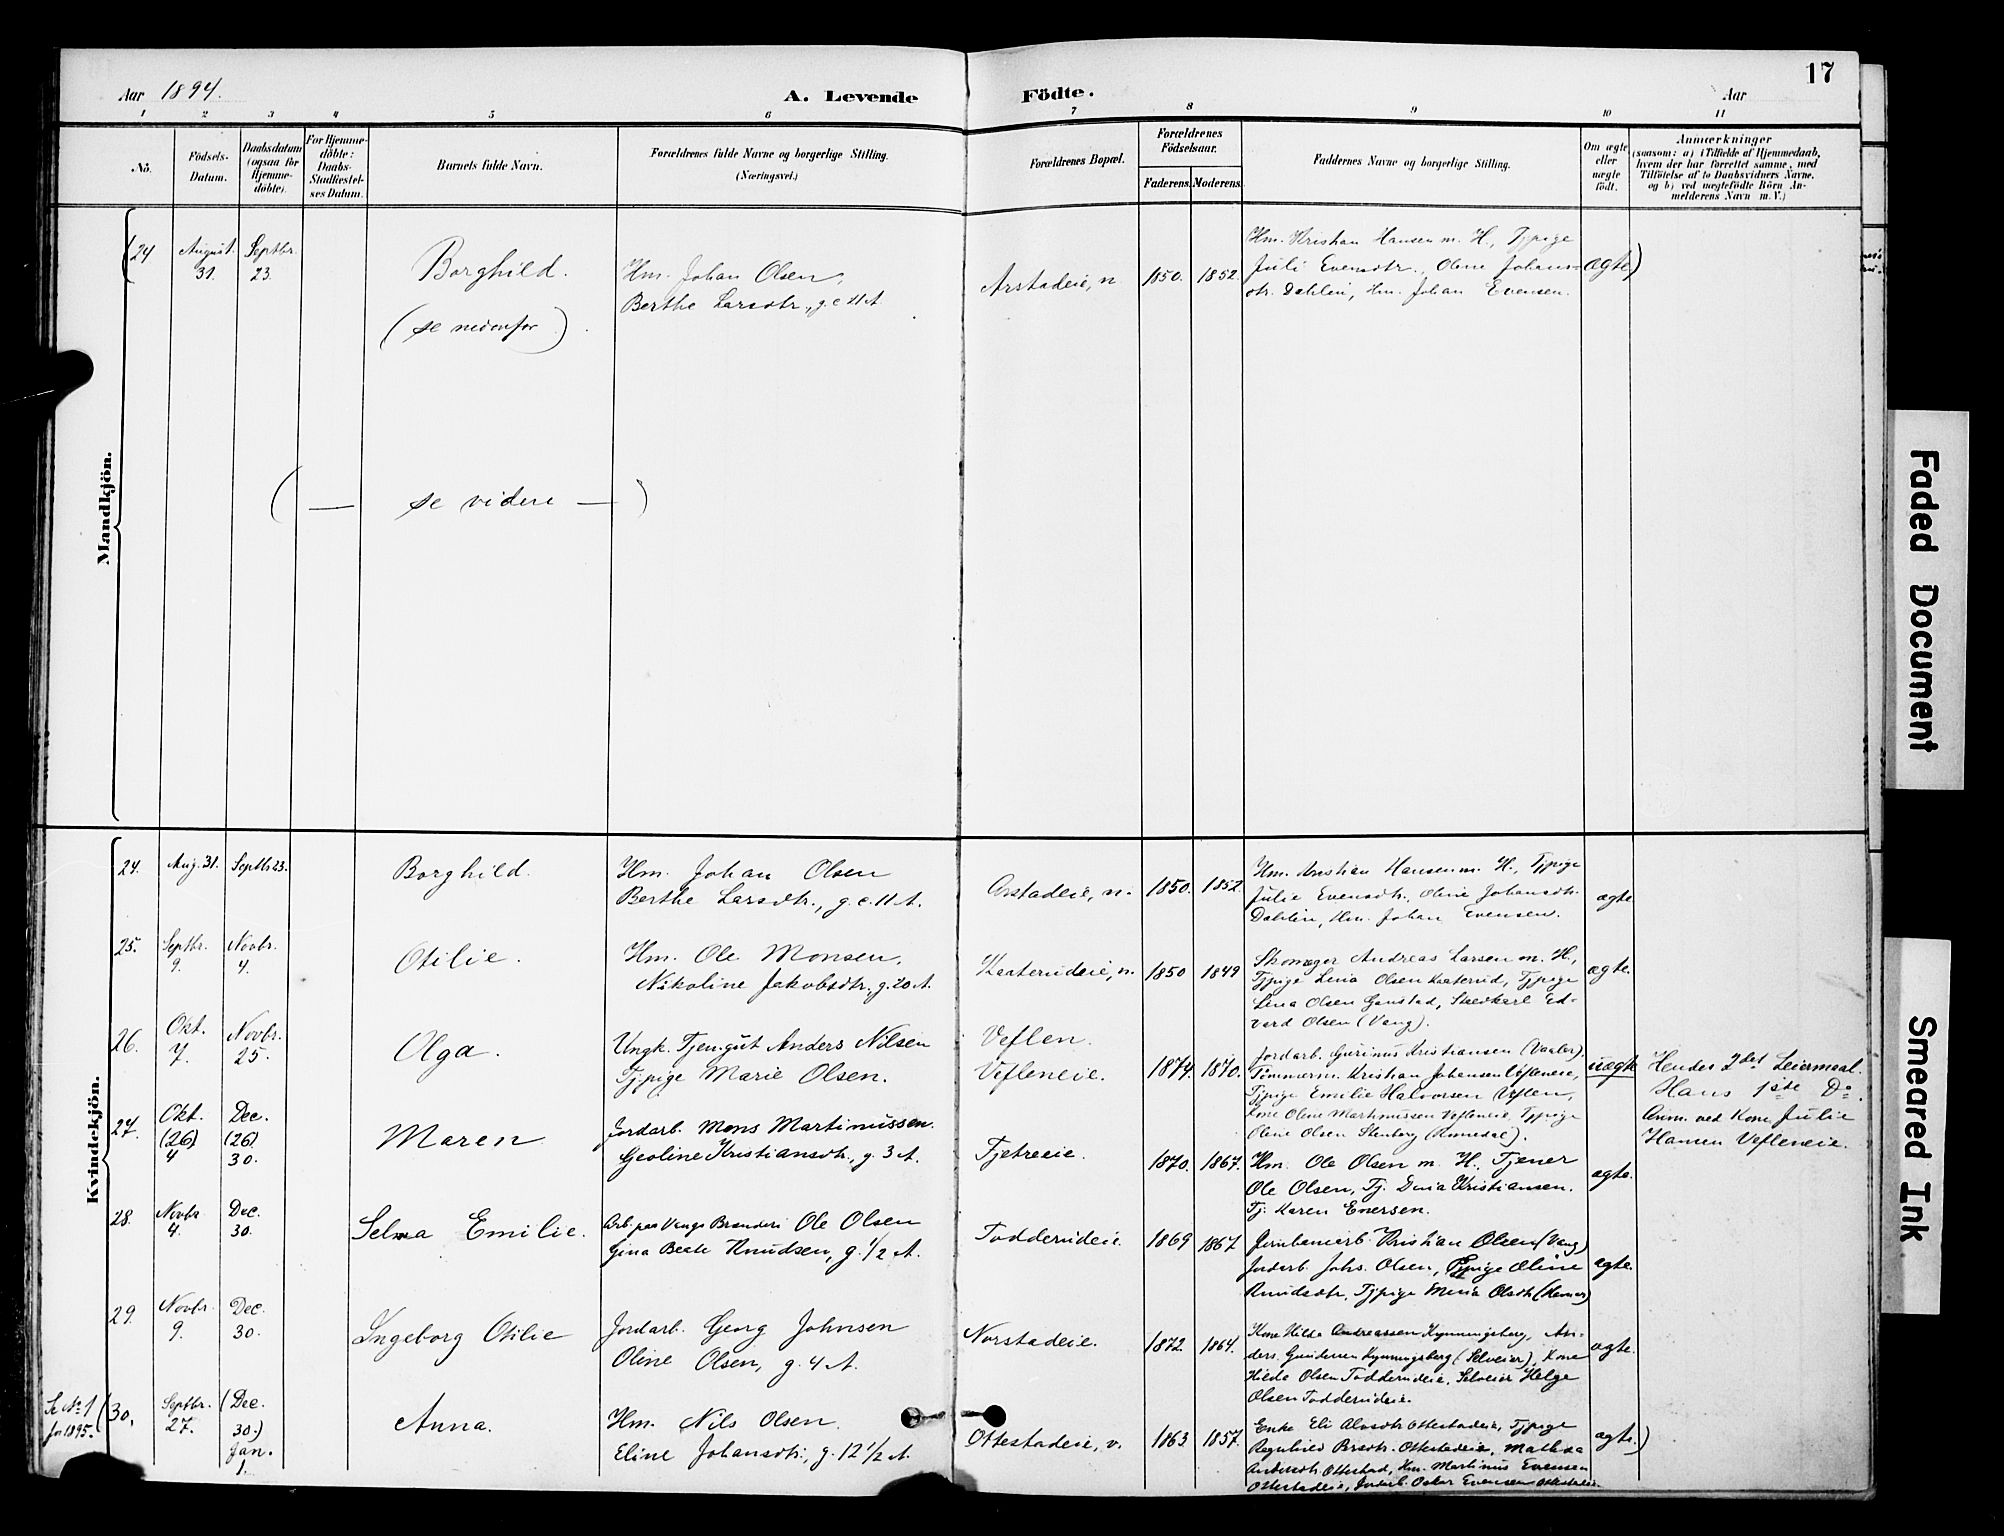 17
Aar 1894.
A. Levende Födte.
Aar
1 2 3 4 5 6 7 8 9 10 11
No.
Födsels-
Datum.
Daabsdatum
(ogsaa for
Hjemme-
döbte).
For Hjemme-
döbte:
Daabs-
Stadfæstel-
ses Datum.
Barnets fulde Navn.
Forældrenes fulde Navne og borgerlige Stilling.
(Næringsvei.)
Forældrenes Bopæl.
Forældrenes
Födselsaar.
Faderens. Moderens.
Faddernes Navne og borgerlige Stilling.
Om ægte
eller
uægte
födt.
Anmærkninger
(saasom: a) i Tilfælde af Hjemmedaab,
hvem der har forrettet samme, med
Tilföielse af to Daabsvidners Navne,
og b) ved uægtefödte Börn An-
melderens Navn m. V.)
Mandkjön.
(24
August
31.
Septbr.
23.
Borghild.
(se nedenfor)
Hm. Johan Olsen,
Berthe Larsdtr., g. e. 11 A.
Arstadeie, n.
1850. 1852.
Hm. Kristian Hansen m. H., Tjpige
Juli Evensdtr., Oline Johans-
dtr. Dahlin, Hm. Johan Evensen.
ægte)
( — se videre — )
Kvindekjön.
24.
Aug. 31.
Septbr 23.
Borghild.
Hm. Johan Olsen
Berthe Larsdtr., g. e. 11 A.
Arstadeie, n.
1850. 1852
Hm. Kristian Hansen m. H., Tjpige
Julie Evensdtr., Oline Johansdtr.
Dahlin, Hm. Johan Evensen.
ægte
25.
Septbr.
9.
Novbr.
4.
Otilie.
Hm. Ole Monsen,
Nikoline Jakobsdtr., g. 20 A.
Kaaterudeie, n.
1850 1849
Skomager Andreas Larsen m. H.,
Tjpige Lina Olsen Kaaterud, Tjpige
Lina Olsen Gaustad, Stedkarl Ed-
vard Olsen (Vang).
ægte.
26.
Okt.
7.
Novbr.
25.
Olga.
Ungk. Tjen.gut Anders Nilsen
Tj.pige Marie Olsen.
Veflen.
Vefleneie.
1874. 1870.
Jordarb. Gurinus Kristiansen (Vaaler).
Tømmerm. Kristian Johansen Vefleneie,
Tjpige Emilie Halvorsen Veflen,
Kone Oline Martinussen Vefleneie, Tjpige
Oline Olsen Stenberg (Romedal).
uægte
Hendes 2det Leiermaal.
Hans 1ste Do.
Anm. ved Kone Julie
Hansen Vefleneie.
27.
Okt.
(26)
4
Dec.
(26)
30.
Maren
Jordarb. Mons Martinussen.
Geoline Kristiansdtr., g. 3 A.
Fjetreeie.
1870. 1867.
Hm. Ole Olsen m. H., Tjener
Ole Olsen, Tj. Dina Kristiansen.
Tj. Karen Enersen.
ægte.
28.
Novbr
4.
Dec.
30.
Selma Emilie.
Arb. paa Vangs Brænderi Ole Olsen
Gina Beate Knudsen, g. 1/2 A.
Todderudeie.
1869 1867
Jernbanearb. Kristian Olsen (Vang)
Jordarb. Johs. Olsen, Tjpige Oline
Knudsdtr, Tjpige Maria Olsdtr
ægte.
29.
Novbr.
9.
Dec.
30.
Ingeborg Otilie
Jordarb. Georg Johnsen
Oline Olsen, g. 4 A.
Norstadeie.
1872. 1864.
Kone Hilda Andreassen Kynningsberg, An-
ders Gundersen Kynningsberg (Selveier), Kone
Hilda Olsen Todderudeie, Selveier Helge
Olsen Todderudeie.
ægte.
Se No 1
for 1895.
(30.
Septbr.
27.
(Dec.
30.)
Jan.
1.
Anna.
Hm. Nils Olsen
Eline Johansdtr., g. 12 1/2 A.
Ottestadeie, v.
1863 1857.
Enke Eli Alvsdtr Ottestadeie, Tjpige
Ottestadeie, Mathea
Andersdtr Ottestad, Hm. Martinus Evensen
Ottestadeie, Jordarb. Oskar Evensen Ottestadeie.
ægte.)
Faded Document
Smeared Ink